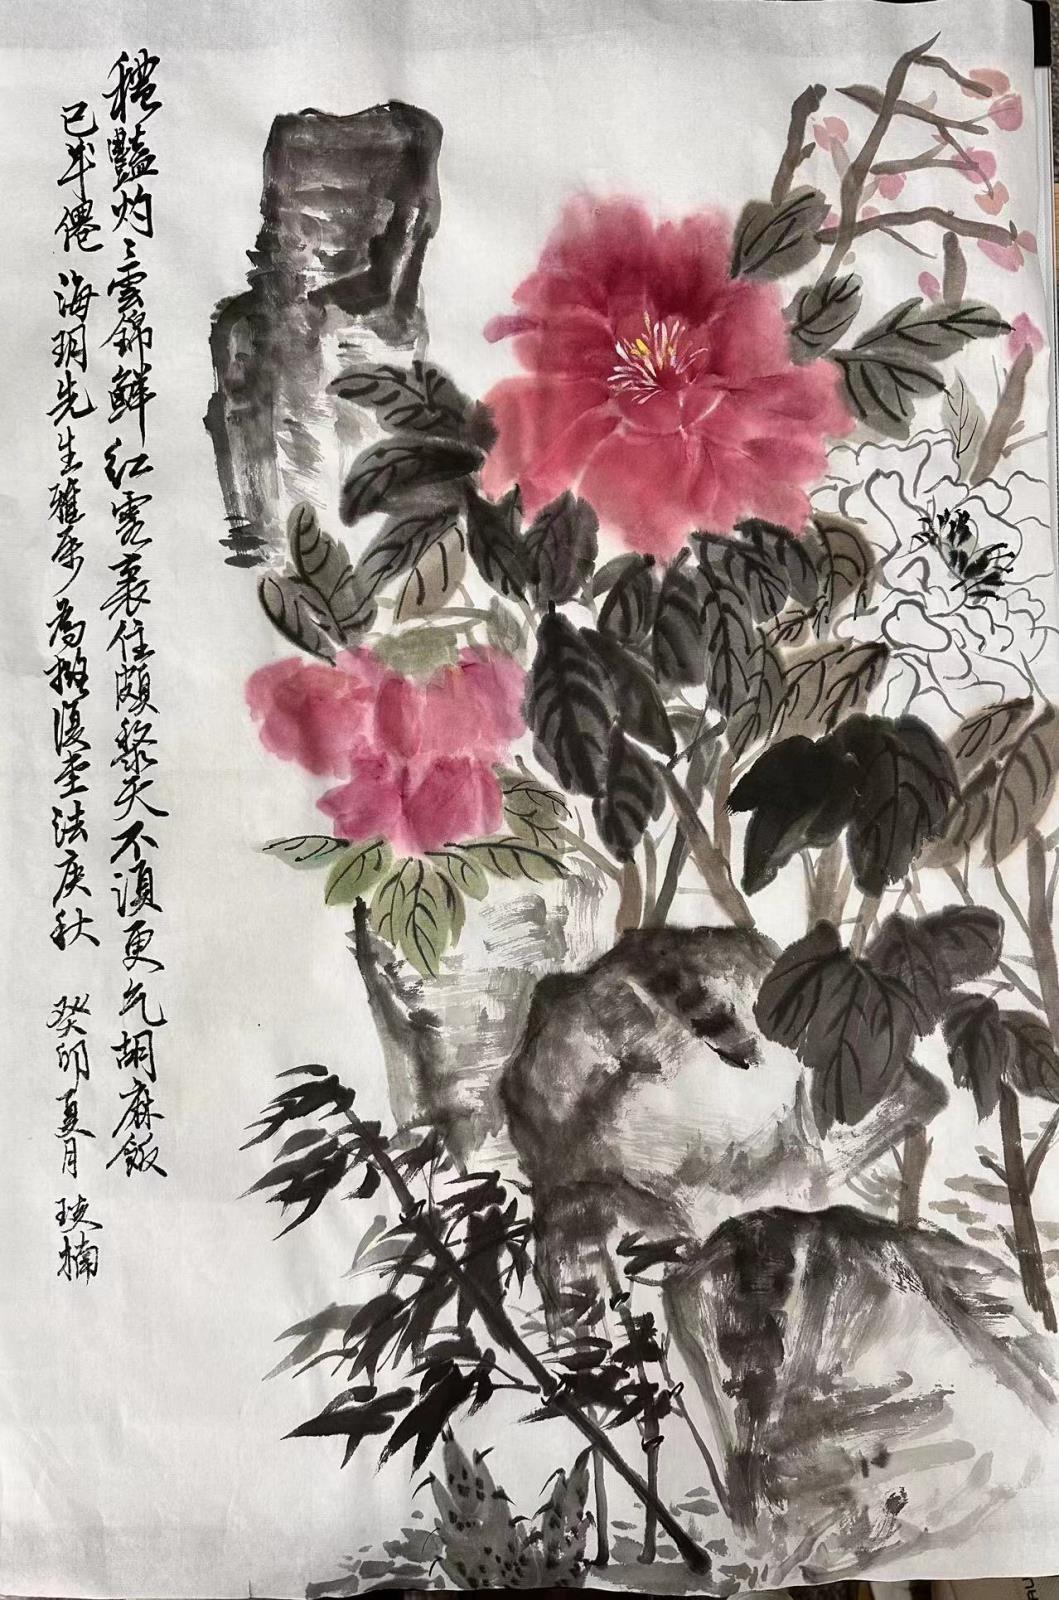 穠豔灼〻雲錦鮮紅霞裹住頗黎天不須更乞胡麻飯
已半僊 海玥先生雅属為擬復堂法庚秋 癸卯夏月 楠